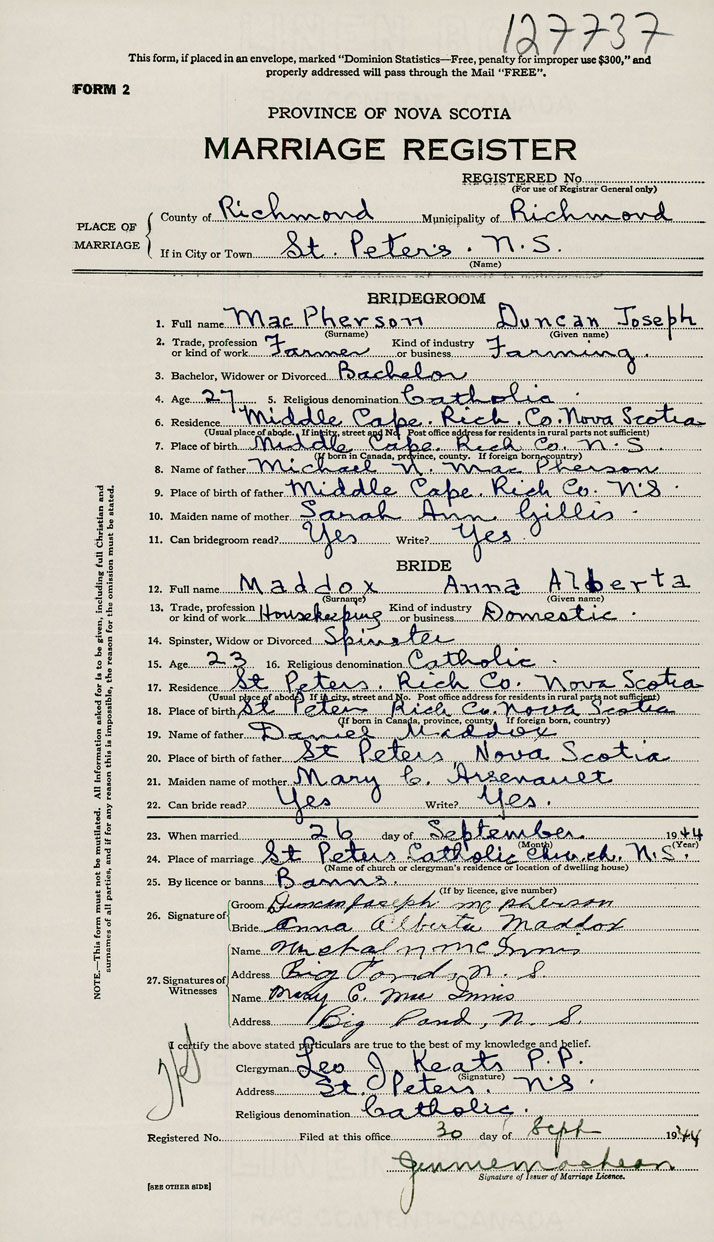 127737
This form, if placed in an envelope, marked "Dominion Statistics—Free, penalty for improper use $300," and
properly addressed will pass through the Mail "FREE".
FORM 2
PROVINCE OF NOVA SCOTIA
MARRIAGE REGISTER
REGISTERED No.
(For use of Registrar General only)
PLACE OF MARRIAGE
County of Richmond Municipality of Richmond
If in City or Town St. Peter's. N.S.
(Name)
BRIDEGROOM
1. Full name MacPherson Duncan Joseph
(Surname) (Given name)
2. Trade, profession or kind of work Farmer Kind of industry or business Farming.
3. Bachelor, Widower or Divorced Bachelor
4. Age 27 5. Religious denomination Catholic.
6. Residence Middle Cape. Rich. Co. Nova Scotia
(Usual place of abode. If in city, street and No. Post office address for residents in rural parts not sufficient)
7. Place of birth Middle Cape. Rich Co. N.S.
(If born in Canada, province, county. If foreign born, country)
8. Name of father Michael N. MacPherson
9. Place of birth of father Middle Cape. Rich Co. N.S.
10. Maiden name of mother Sarah Ann Gillis.
11. Can bridegroom read? Yes Write? Yes.
BRIDE
12. Full name Maddox Anna Alberta
(Surname) (Given name)
13. Trade, profession or kind of work Housekeeping Kind of industry or business Domestic.
14. Spinster, Widow or Divorced Spinster
15. Age 23 16. Religious denomination Catholic.
17. Residence St Peters. Rich Co. Nova Scotia
(Usual place of abode. If in city, street and No. Post office address for residents in rural parts not sufficient)
18. Place of birth St Peters Rich Co. Nova Scotia
(If born in Canada, province, county. If foreign born, country)
19. Name of father Daniel Maddox
20. Place of birth of father St Peters, Nova Scotia
21. Maiden name of mother Mary C. Arsenault
22. Can bride read? Yes Write? Yes.
23. When married 26 day of September. 1944
(Month) (Year)
24. Place of marriage St Peters Catholic Church. N.S.
(Name of church or clergyman's residence or location of dwelling house)
25. By licence or banns Banns.
(If by licence, give number)
26. Signature of
Groom Duncan Joseph McPherson
Bride Anna Alberta Maddox
27. Signatures of Witnesses
Name Michal N McInnis
Address Big Pond, N. S.
Name Mary C. Mac Innis
Address Big Pond, N. S.
I certify the above stated particulars are true to the best of my knowledge and belief.
Clergyman Leo J Keats P.P.
(Signature)
Address St. Peters. N.S.
Religious denomination Catholic.
Registered No. Filed at this office 30 day of Sept 1944
Signature of Issuer of Marriage Licence.
[SEE OTHER SIDE]
NOTE.—This form must not be mutilated. All information asked for is to be given, including full Christian and
surnames of all parties, and if for any reason this is impossible, the reason for the omission must be stated.